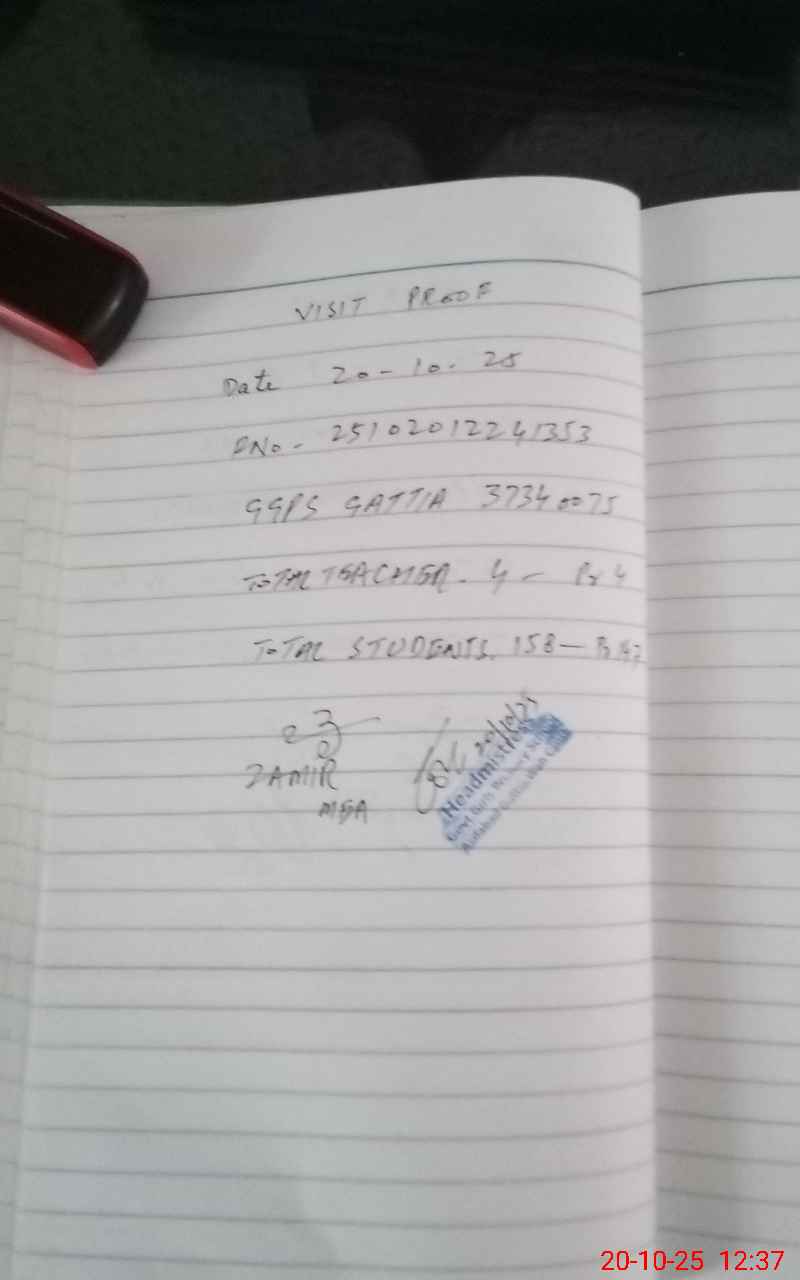 VISIT PROOF
Date 20-10-25
PNo- 25102012241353
GGPS GATTIA 37340075
TOTAL TEACHER - 4 - Pr 4
TOTAL STUDENTS. 158 - Pr
ZAMIR
MEA
20/10/25
Headmistress
Govt Girls
20-10-25 12:37